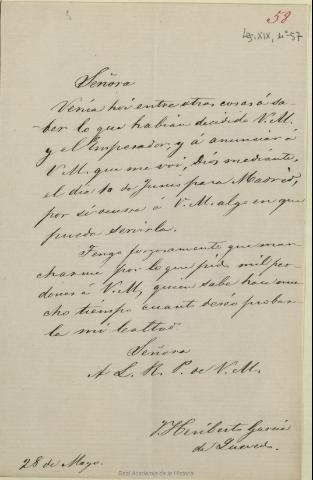 58
Leg. XIX, nº 57
Señora
Venía hoi entre otras cosas á sa-
-ber lo que habían decidido V.M.
y el Emperador, y á anunciar á
V.M. que me voi, Dios mediante,
el dia 10 de Junio para Madrid,
por si ocurre á V.M. algo en que
pueda servirla.
Tengo forzosamente que mar-
charme por lo que pido mil per-
dones á V.M., quien sabe hace mu-
cho tiempo cuanto deseo probar-
la mi lealtad
Señora
A L. R. P. de V.M.
J. Heriberto García
de Quevedo
28 de Mayo.
Real Academia de la Historia